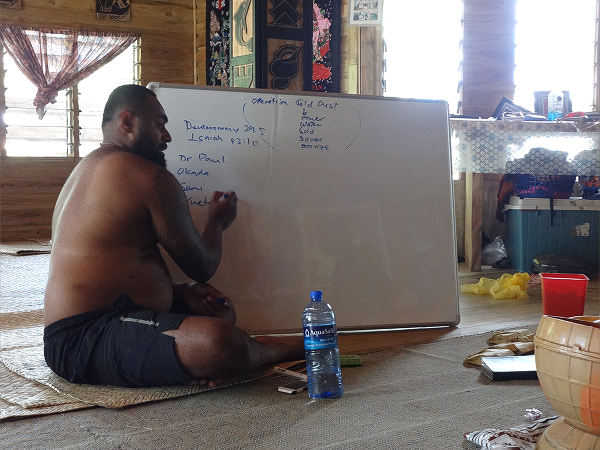 Operation Gold Dust
&
Power
Water
Gold
Silver
Bronze
Deuteronomy 29.5
Isaiah 43:10
Dr Paul
Okada
AquaSafe